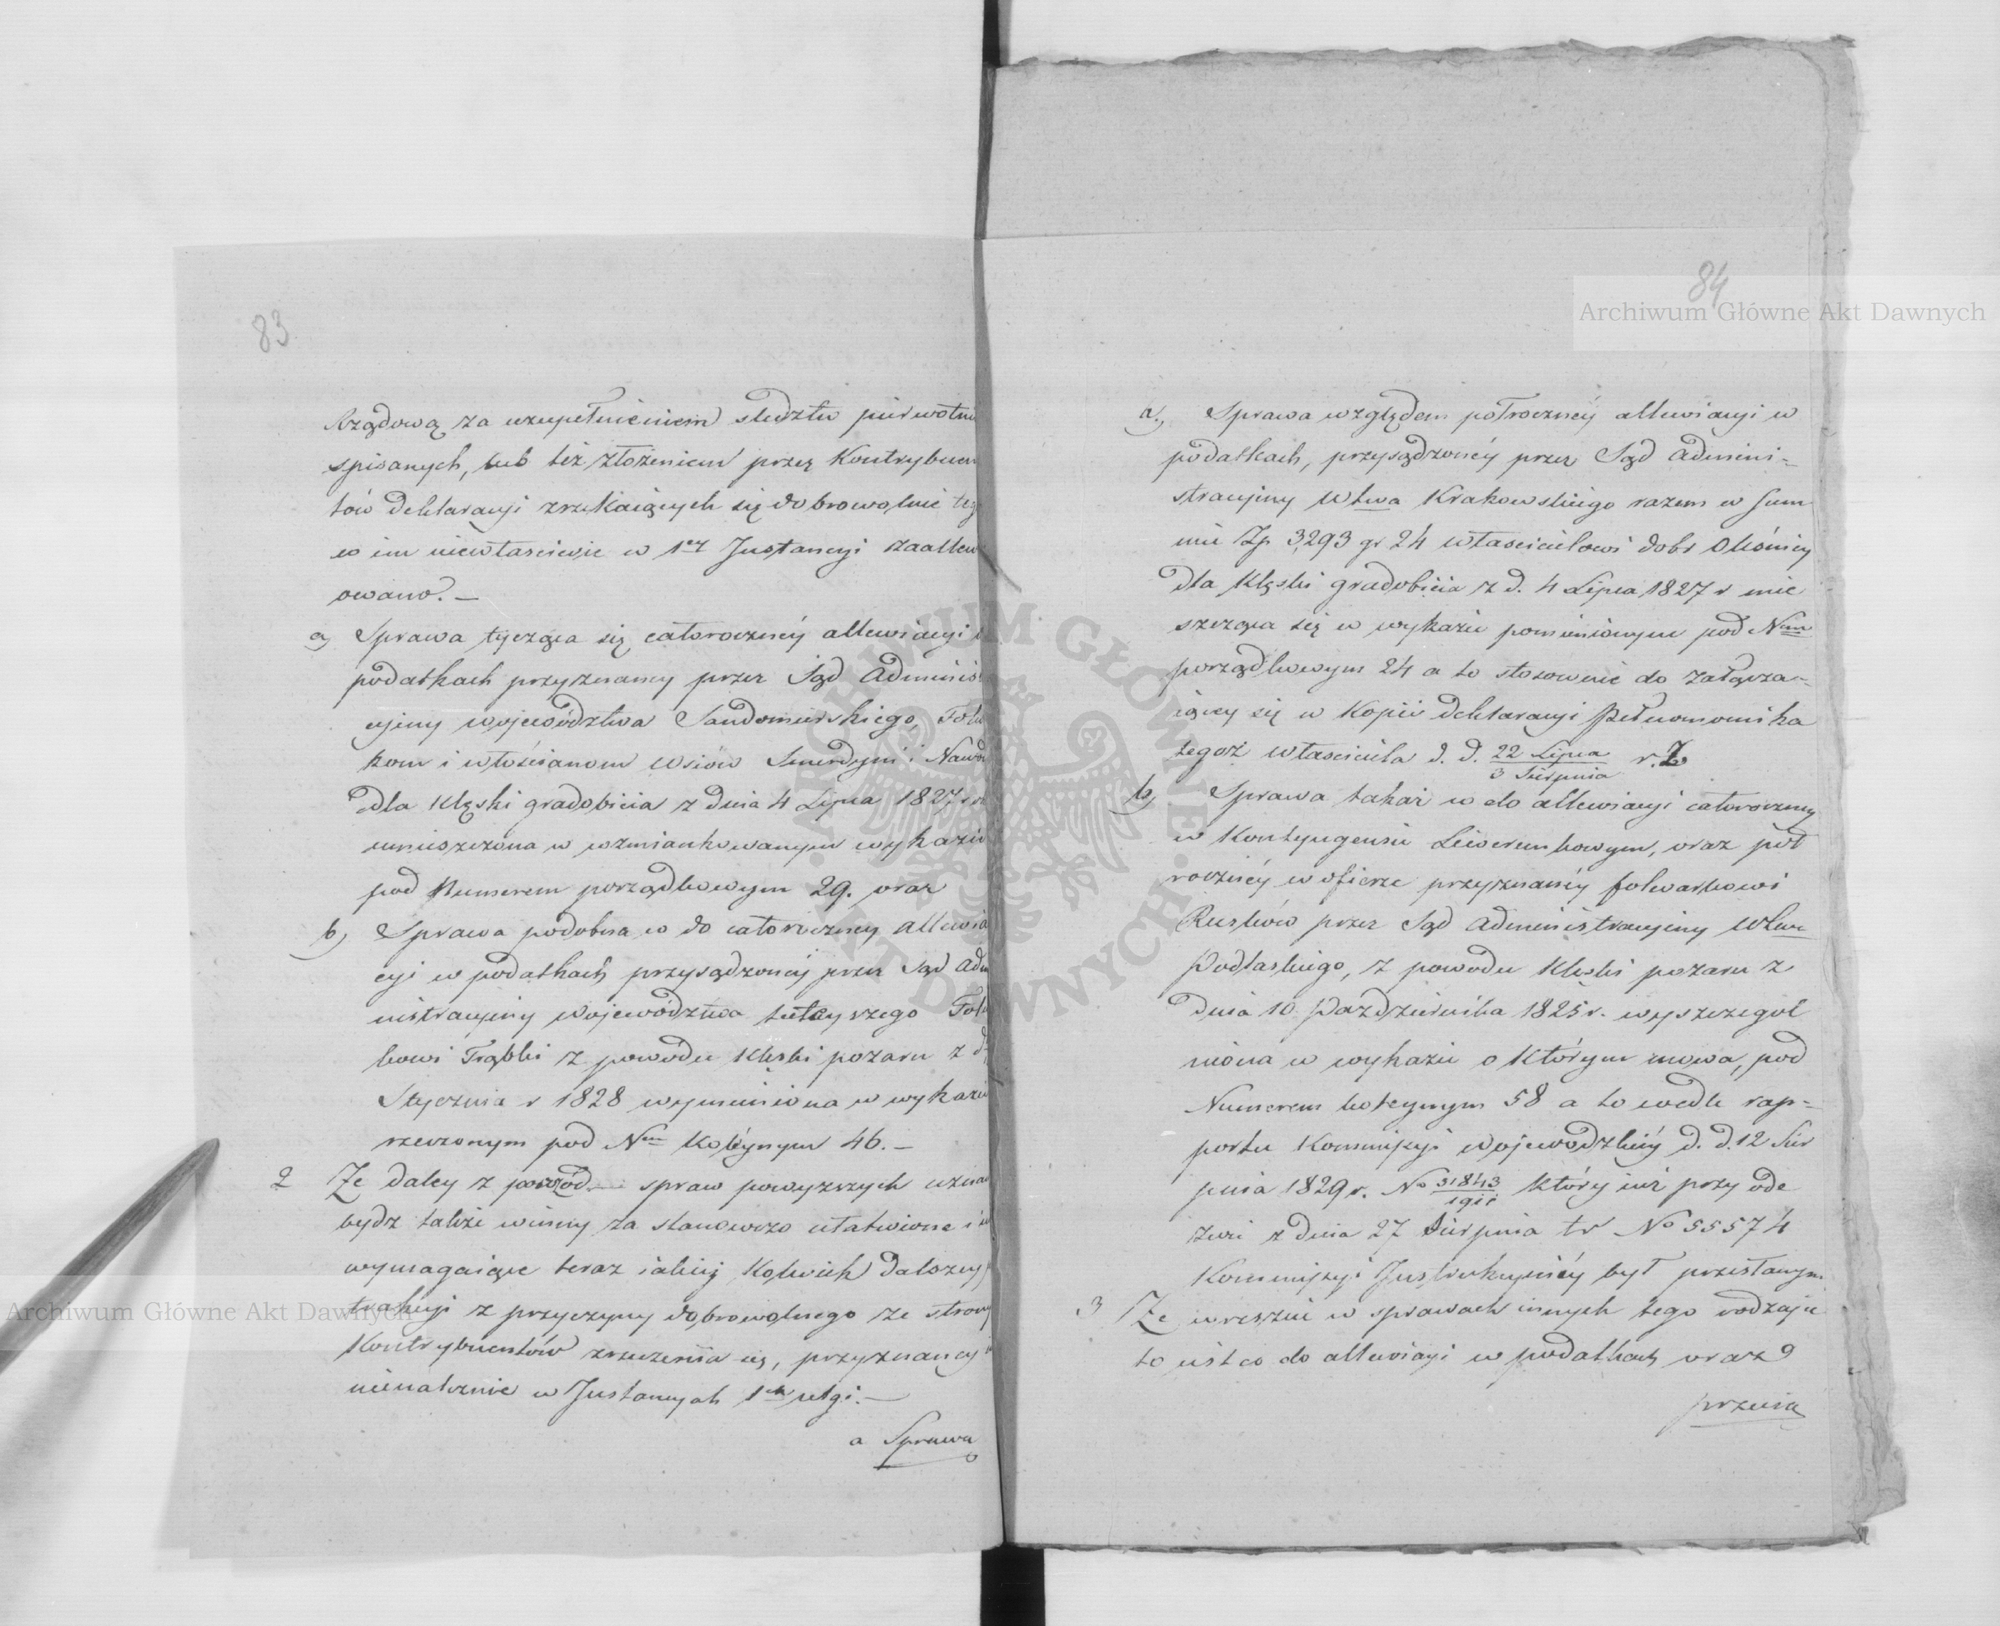 83
Rządową za uzupełnieniem śledztw pierwotn
spisanych, lub też złożeniem przez Kontrybuen
tów deklaracyi zrzekaiących się dobrowolnie teg
co im niewłaściwie w 1ey Instancyi zaallew
owano. –
a) Sprawa tycząca się całorocznéy allewiacyi
podatkach przyznaney przez Sąd Adminis
cyiny województwa Sandomirskiego, Folw
kom i włościanom wsiów Smerdyni i Nawod
dla klęski gradobicia z dnia 4 Lipca 1827 r
umieszczona w wzmiankowanym wykazie
pod Numerem porządkowym 29. oraz
b) Sprawa podobna co do całoroczney allewia
cyi w podatkach przysądzonéy przez Sąd Adm
nistracyiny województwa tuteyszego Fol
kowi Trąbki z powodu klęski pożaru z d
Stycznia r 1828 wymieniona w wykazie
rzeczonym pod Nm kolejnym 46. –
2 Że daley z pośród spraw powyższych uzna
bydź także winny za stanowczo ułatwione i
wymagaiące teraz iakiey kolwiek dalszey
trakcyi z przyczyny dobrowolnego ze strony
Kontrybuentów zrzeczenia się, przyznaney
nienależnie w Instancyah 1ch ulgi. –
a Sprawa
84
a) Sprawa względem półrocznéy allewiacyi w
podatkach, przysądzonéy przez Sąd Admini-
stracyiny Wtwa Krakowskiego razem w Sum
mie Zp 3,293 gr 24 właścicielowi dobr Oleśnicy
dla klęski gradobicia z d. 4 Lipca 1827 r mie
szcząca się w wykazie pomienionym pod Nrem
porządkowym 24 a to stosownie do załącza-
iącey się w kopii deklaracyi Pełnomocnika
tegoż właściciela d. d. 22 Lipca / 3 Sierpnia r.b.
b) Sprawa takaż co do allewiacyi całoroczney
w kontyngensie Liwerunkowym, oraz pół
rocznéy w ofierze przyznanéy folwarkowi
Ruskow przez Sąd Administracyiny Wtwa
Podlaskiego, z powodu klęski pożaru z
dnia 10 Października 1825 r. wyszczegól
niona w wykazie o którym mowa, pod
Numerem koleynym 58 a to wedle rap-
portu Kommissyi Wojewódzkiéy d. d. 12 Sier
pnia 1829 r. No 31843 który iuż przy ode
zwie z dnia 27 Sierpnia tr No 55574
Kommissyi Instrukcyinéy był przesłanym
3 Że wreszcie w sprawach innych tego rodzaju
to iest co do allewiacyi w podatkach oraz
przenią
Archiwum Główne Akt Dawnych
Archiwum Główne Akt Dawnych
ARCHIWUM GŁÓWNE AKT DAWNYCH